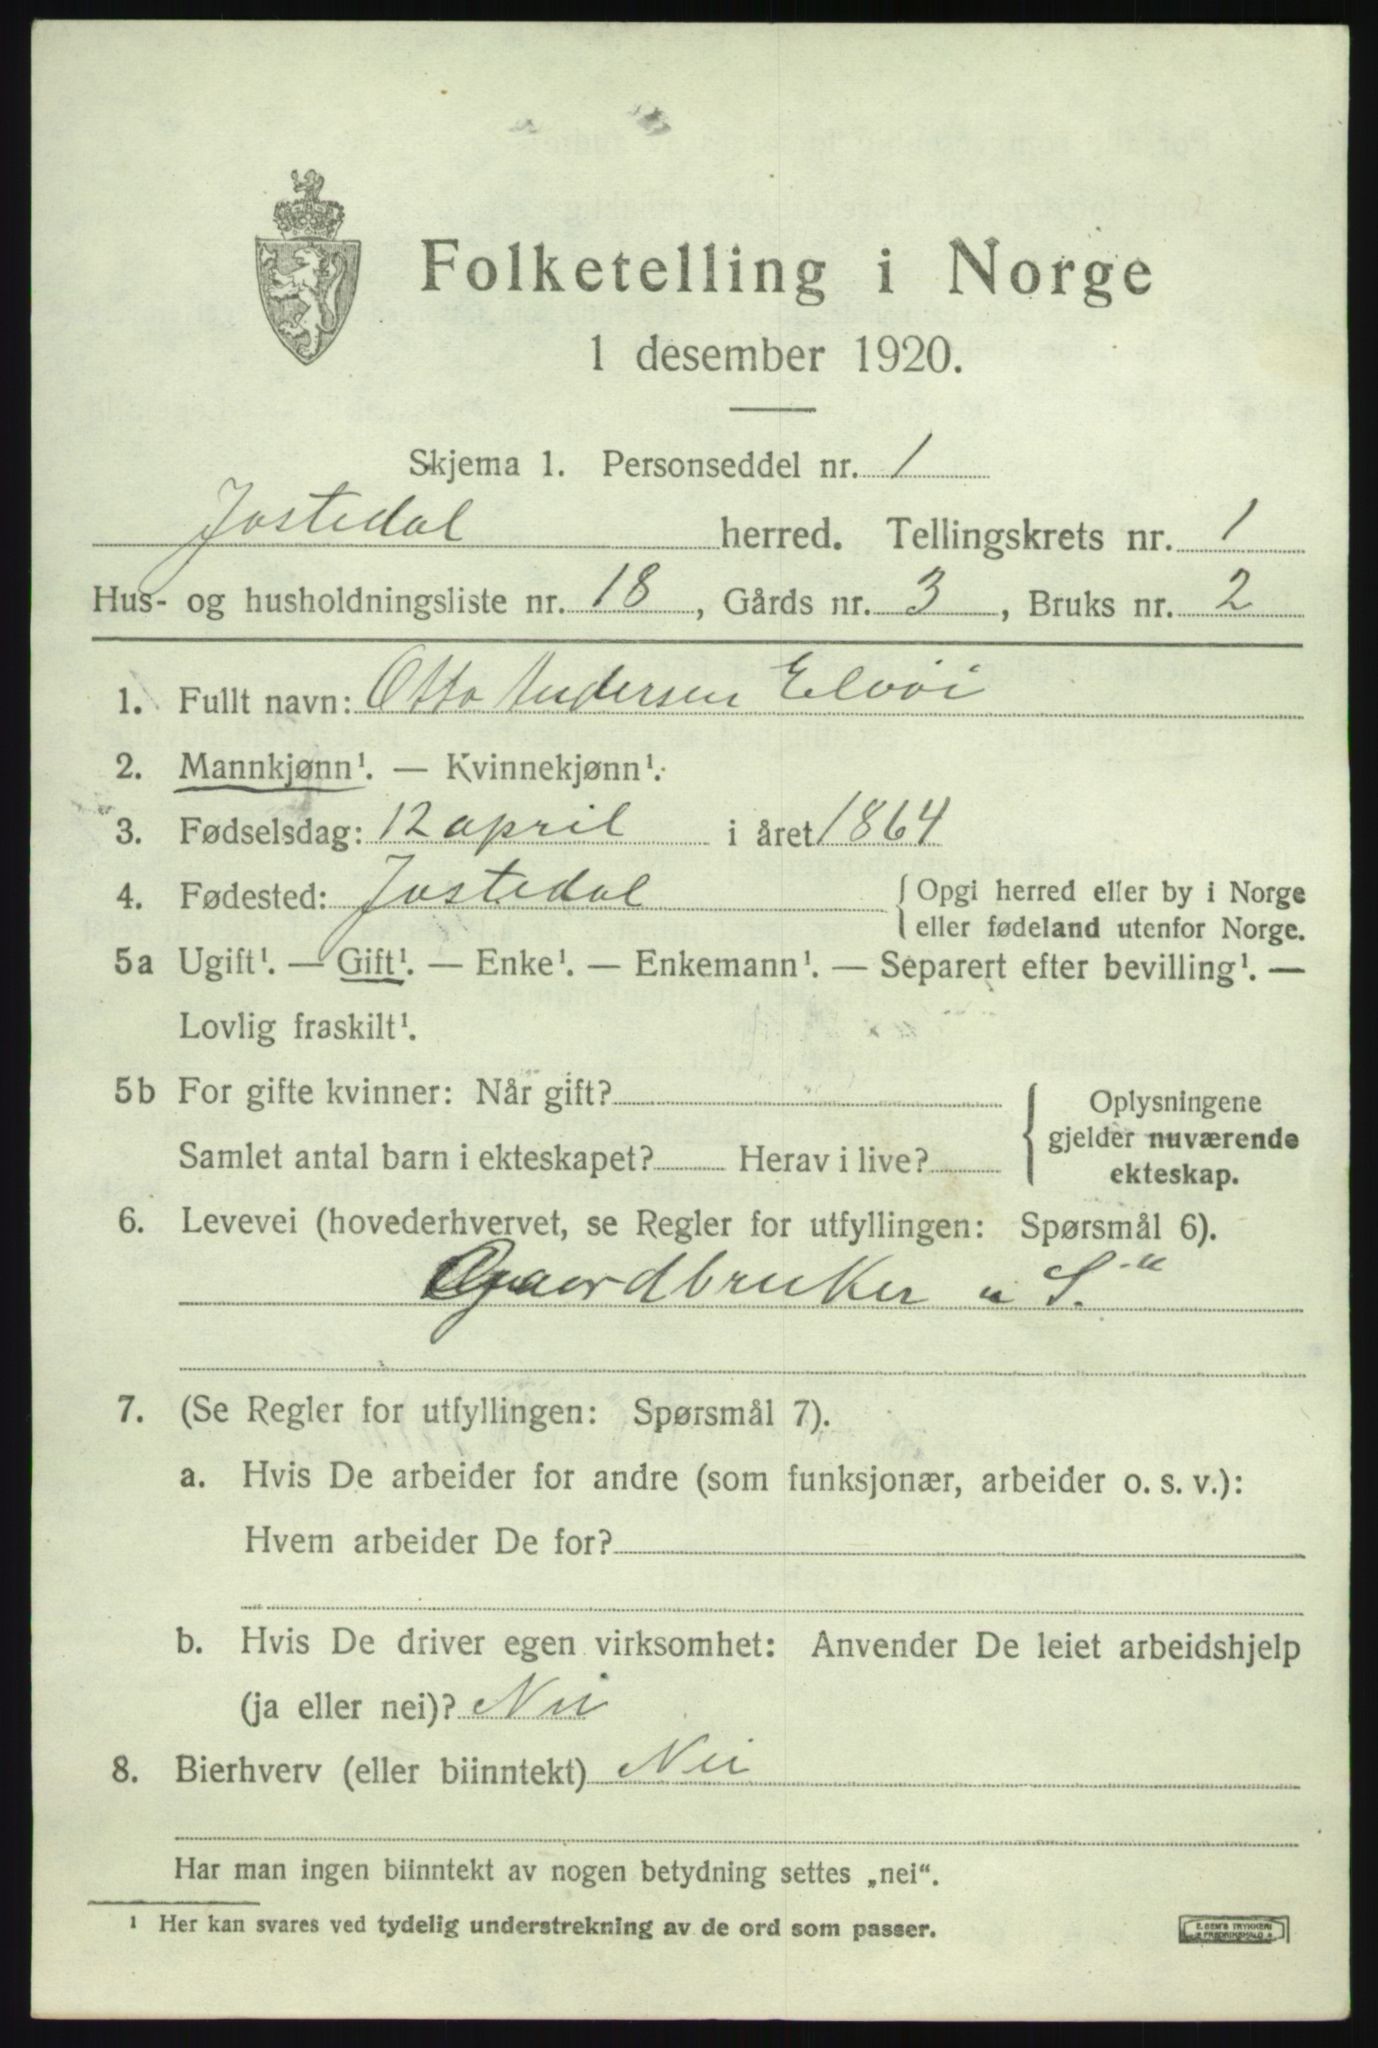 Folketelling i Norge
1 desember 1920.
Skjema 1. Personseddel nr. 1
Jostedal herred. Tellingskrets nr. 1
Hus- og husholdningsliste nr. 18, Gårds nr. 3, Bruks nr. 2
1. Fullt navn: Otto Andersen Elvøi
2. Mannkjønn¹. — Kvinnekjønn¹.
3. Fødselsdag: 12 april i året 1864
4. Fødested: Jostedal { Opgi herred eller by i Norge
eller fødeland utenfor Norge.
5a Ugift¹. — Gift¹. — Enke¹. — Enkemann¹. — Separert efter bevilling¹. —
Lovlig fraskilt¹.
5b For gifte kvinner: Når gift? { Oplysningene
gjelder nuværende
Samlet antal barn i ekteskapet? Herav i live?
ekteskap.
6. Levevei (hovederhvervet, se Regler for utfyllingen: Spørsmål 6).
Gaardbruker " S. "
7. (Se Regler for utfyllingen: Spørsmål 7).
a. Hvis De arbeider for andre (som funksjonær, arbeider o. s. v.):
Hvem arbeider De for?
b. Hvis De driver egen virksomhet: Anvender De leiet arbeidshjelp
(ja eller nei)? Nei
8. Bierhverv (eller biinntekt) Nei
Har man ingen biinntekt av nogen betydning settes „nei“.
¹ Her kan svares ved tydelig understrekning av de ord som passer.
E. SEM'S TRYKKERI
FREDRIKSHALD